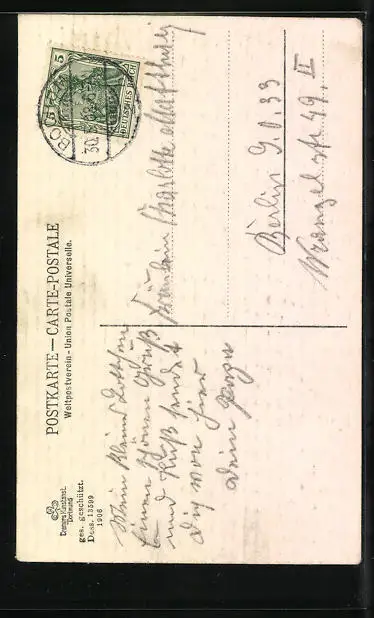 POSTKARTE — CARTE-POSTALE
Weltpostverein - Union Postale Universelle.
Dortmund
ges. geschützt.
Dess. 13599
1906
5 5
DEUTSCHES REICH
30.
Mein kleines
Einen schönen Gruß
und Kuß sendet
Dir von hier
Dein
Fräulein Charlotte
Berlin S.O. 33
Wrangelstr. 49. II